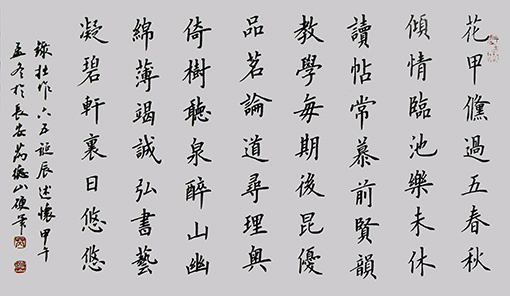 花甲儻過五春秋
傾情臨池樂未休
讀帖常慕前賢韻
教學每期後昆優
品茗論道尋理奧
倚樹聽泉醉山幽
綿薄竭誠弘書藝
凝碧軒裏日悠悠
錄拙作六五誕辰述懷甲午
孟冬於長安萬德山硬筆